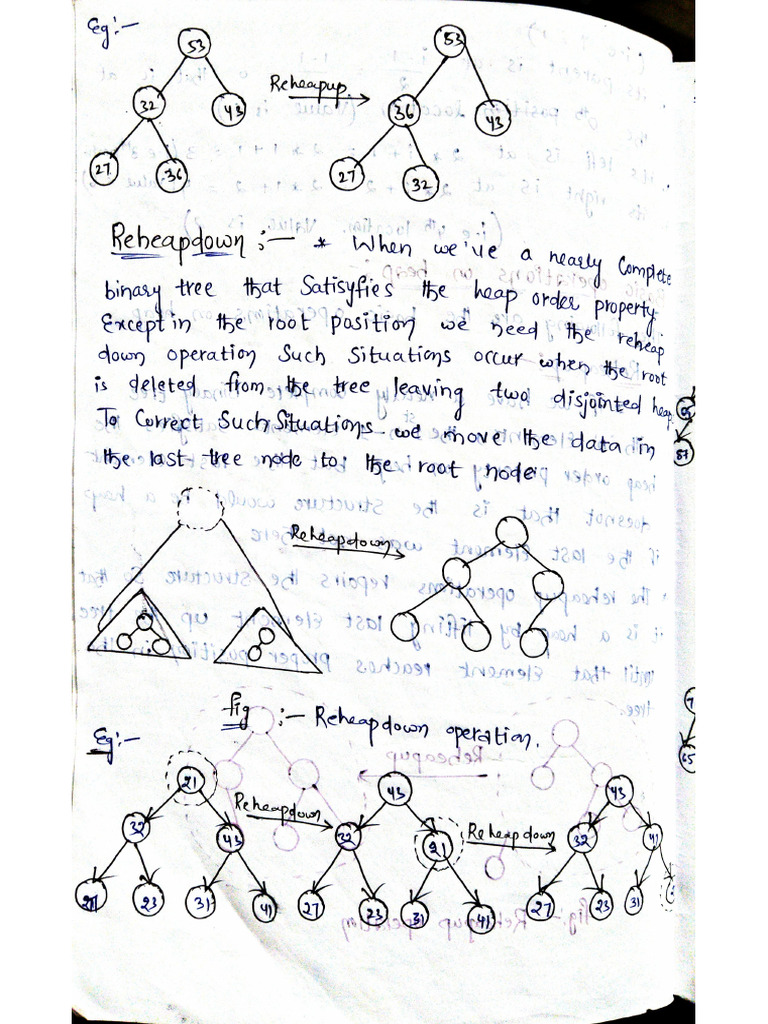 Eg:-
53 53
Reheapup.
32 43 36 43
27 36 27 32
Reheapdown :- * When we've a nearly complete
binary tree that Satisyfies the heap order property
Except in the root position we need the reheap
down operation Such Situations occur when the root
is deleted from the tree leaving two disjointed heap.
To Correct Such Situations we move the data in
the last tree node to the root node
Reheapdown
fig :- Reheapdown operation.
Eg:-
21 43 43
Reheapdown Reheapdown
32 43 32 21 32 41
23 31 41 27 23 31 41 27 23 31